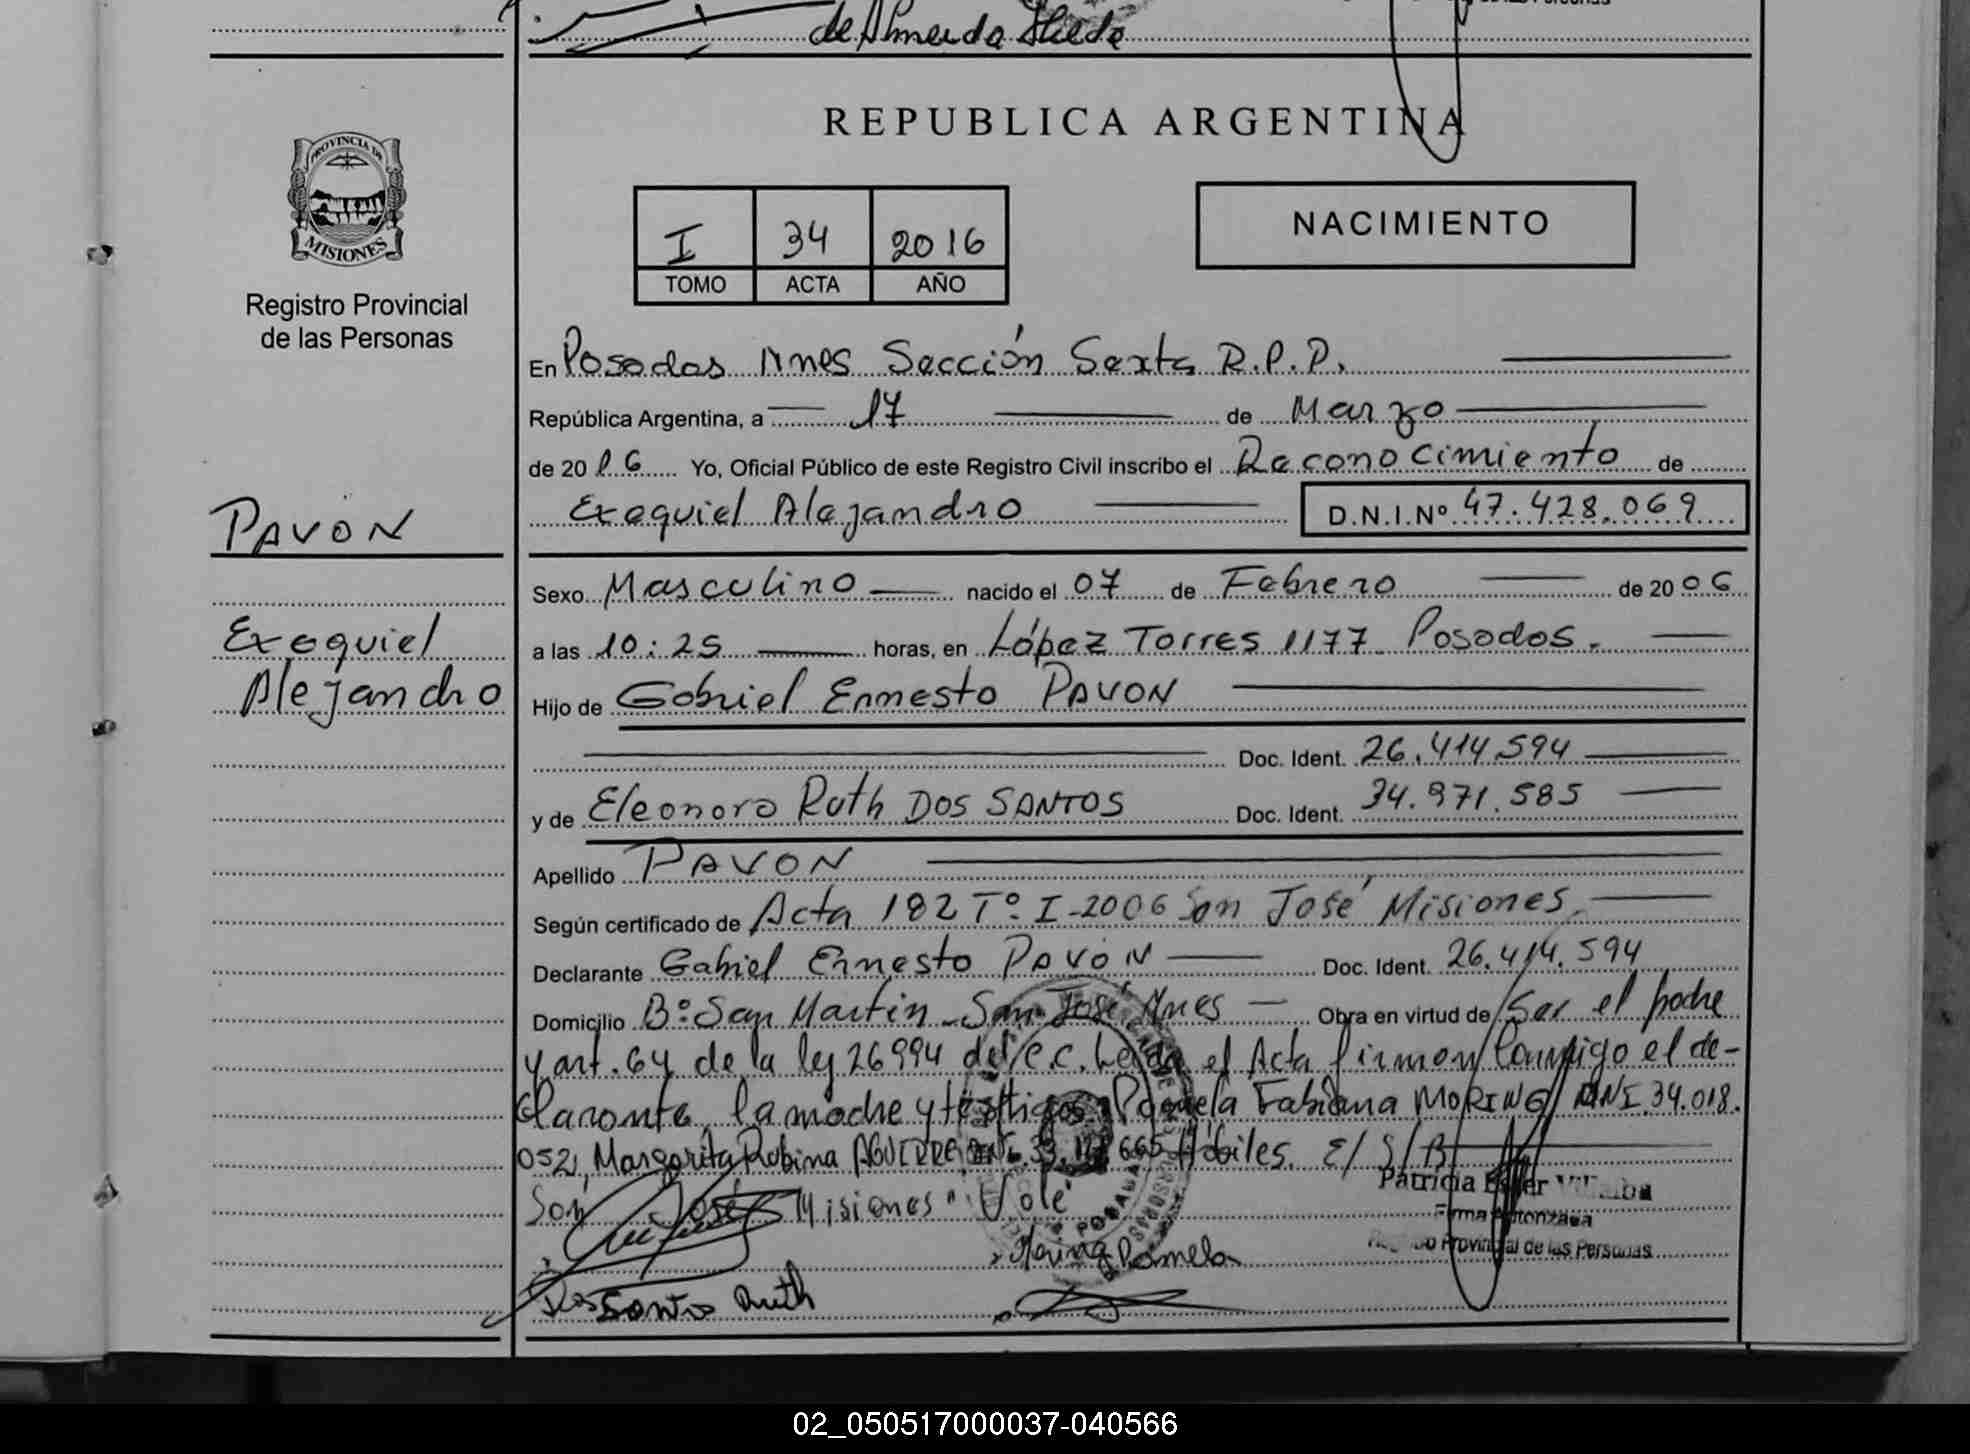 de Almeida Hilda
REPUBLICA ARGENTINA
PROVINCIA DE
MISIONES
Registro Provincial
de las Personas
I 34 2016
TOMO ACTA AÑO
NACIMIENTO
En Posadas Mnes Sección Sexta R.P.P.
República Argentina, a 17 de Marzo
de 2016 Yo, Oficial Público de este Registro Civil inscribo el Reconocimiento de
Exequiel Alejandro D.N.I.Nº 47.428.069
PAVON
Exequiel
Alejandro
Sexo Masculino nacido el 07 de Febrero de 2006
a las 10:25 horas, en López Torres 1177 Posadas.
Hijo de Gabriel Ernesto PAVON
Doc. Ident. 26.414.594
y de Eleonora Ruth DOS SANTOS Doc. Ident. 34.971.585
Apellido PAVON
Según certificado de Acta 182 Tº I-2006 San José Misiones.
Declarante Gabriel Ernesto PAVÓN Doc. Ident. 26.414.594
Domicilio Bº San Martin - San José, Mnes Obra en virtud de Ser el padre
y art. 64 de la ley 26994 del C.C. Leída el Acta firman conmigo el de-
clarante, la madre y testigos Pamela Fabiana MORING DNI.34.018.
052, Margarita Robina AGUIRRE DNI 665 Hábiles. E/S/B
San José Misiones "Vale"
Patricia Ester Villalba
Firma Autorizada
Registro Provincial de las Personas
Moring Pamela
Dos Santos Ruth
02_050517000037-040566